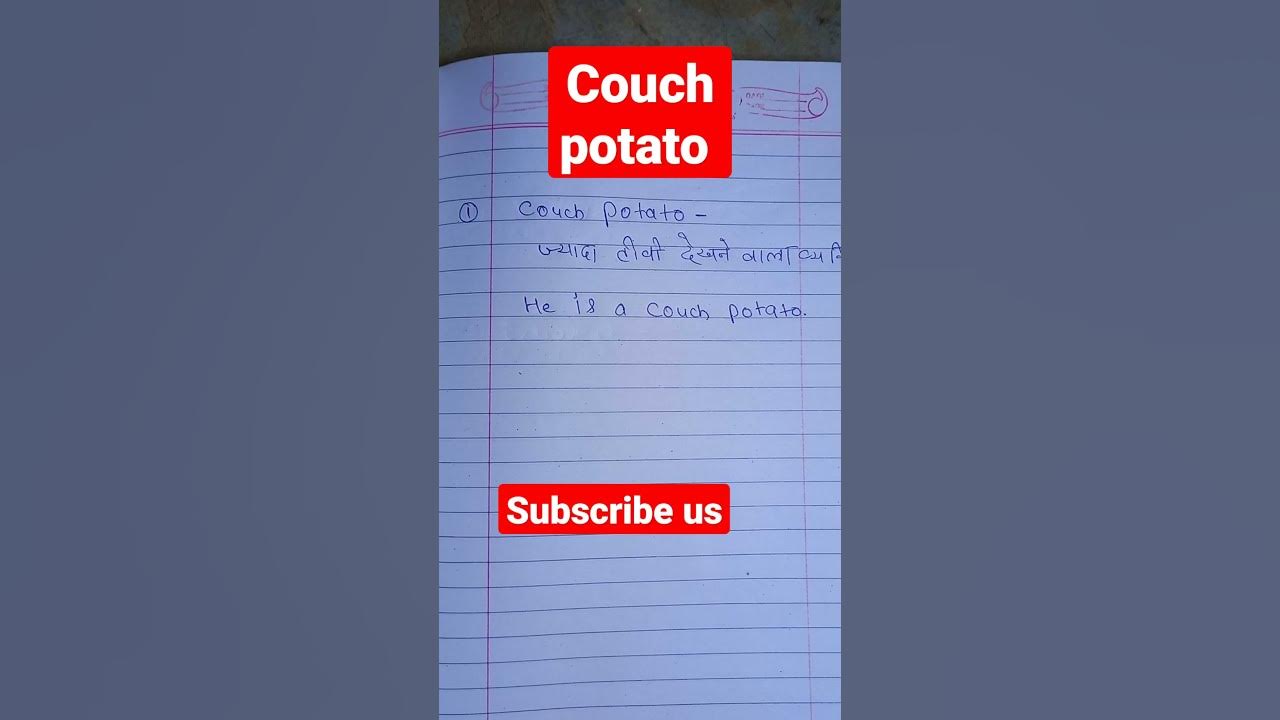 Couch
potato
① Couch potato –
ज्यादा टीवी देखने वाला
He is a couch potato.
Subscribe us